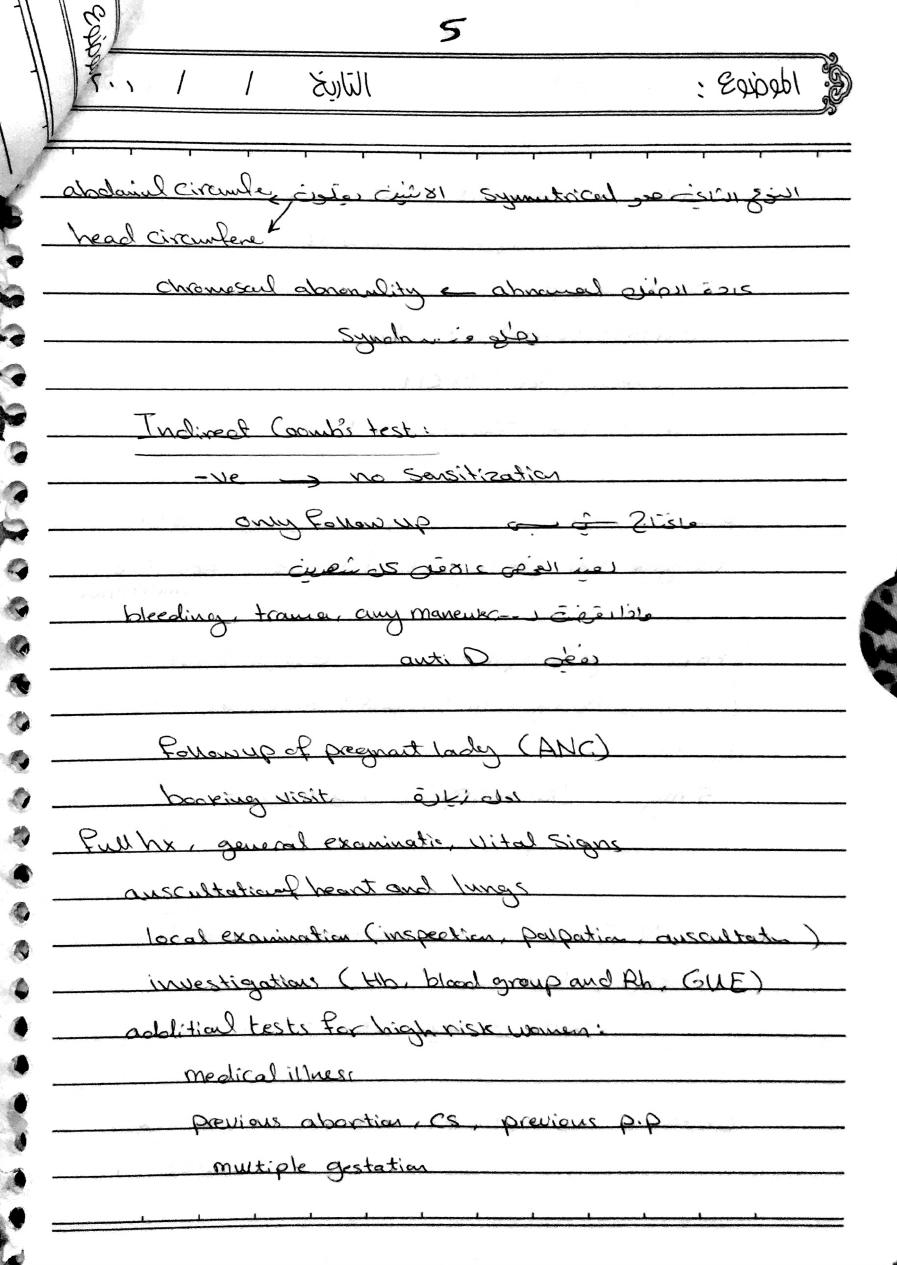 5
الموضوع : التاريخ / / ٢٠١
الموضوع
النوع الثاني هو symmetrical الاثنين يقلون abdominl circumfe
head circumfere
عادة الطفل abnormal ← chromosoul abnormality
يطلع syndr
Indirect Coomb's test:
-ve → no sensitization
مانحتاج شي only follow up
نعيد الفحص كل شهرين
فاذا تعرضت bleeding, trauma, any maneuver
نعطي anti D
Follow up of pregnant lady (ANC)
booking visit اول زيارة
full hx, general examinatio, vital signs
auscultation of heart and lungs
local examination (inspection, palpation, auscultation)
investigations (Hb, blood group and Rh, GUE)
additial tests for high risk women:
medical illness
previous abortion, CS, previous p.p
multiple gestation